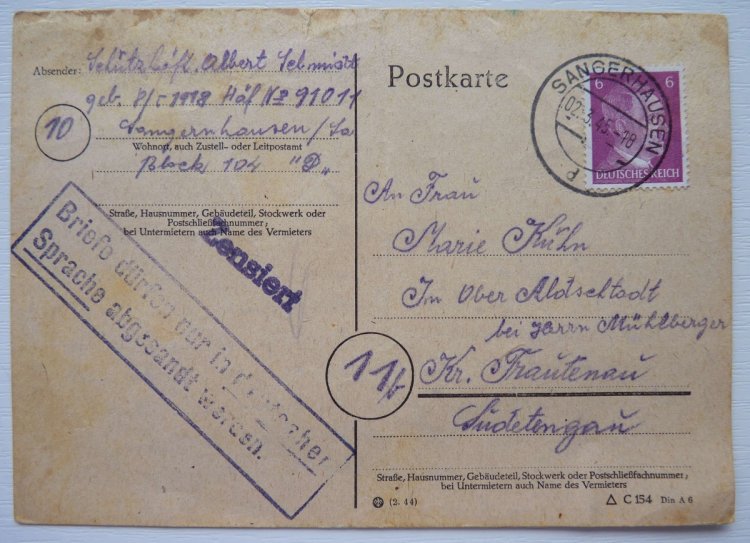 Absender: Schutzhäftl. Albert Schmidt
geb. 8/5 1918 Häf № 91011
Sangerhausen/Sa
Wohnort, auch Zustell- oder Leitpostamt
Block 104 "D"
10
Straße, Hausnummer, Gebäudeteil, Stockwerk oder
Postschließfachnummer;
bei Untermietern auch Name des Vermieters
Zensiert
Briefe dürfen nur in deutscher
Sprache abgesandt werden.
Postkarte
SANGERHAUSEN
02.3.45-18
6 6
DEUTSCHES REICH
An Frau
Marie Kühn
In Ober Aldschtadt
bei Herrn Mühlberger
11b
Kr. Trautenau
Sudetengau
Straße, Hausnummer, Gebäudeteil, Stockwerk oder Postschließfachnummer;
bei Untermietern auch Name des Vermieters
(2. 44)
△ C 154 Din A 6